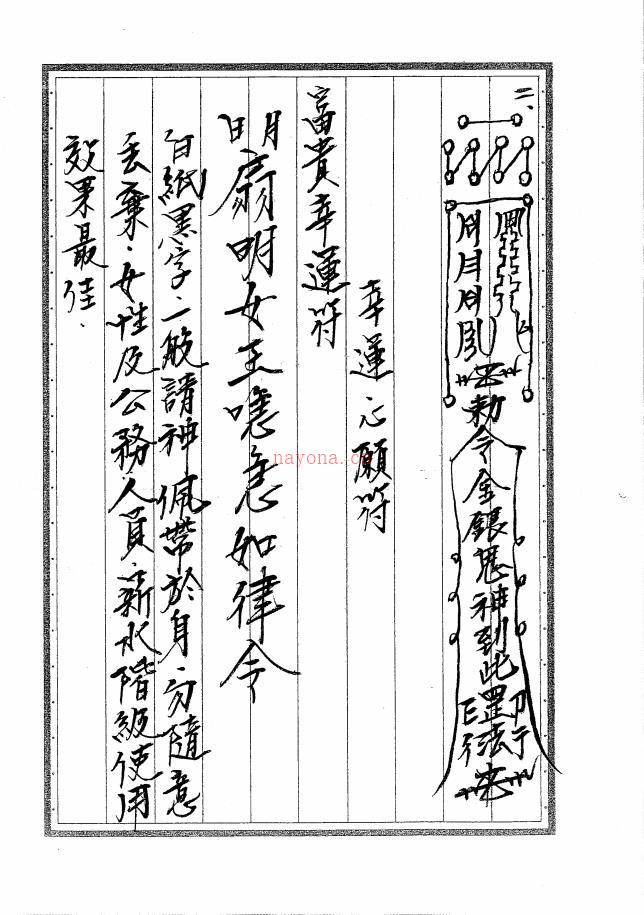 二、
敕令金銀鬼神到此罡法
幸運心願符
富貴幸運符
明扇明女王喼急如律令
白紙黑字、一般請神佩帶於身、勿隨意
丟棄、女性及公務人員、薪水階級使用
效果最佳.
nayona.cn